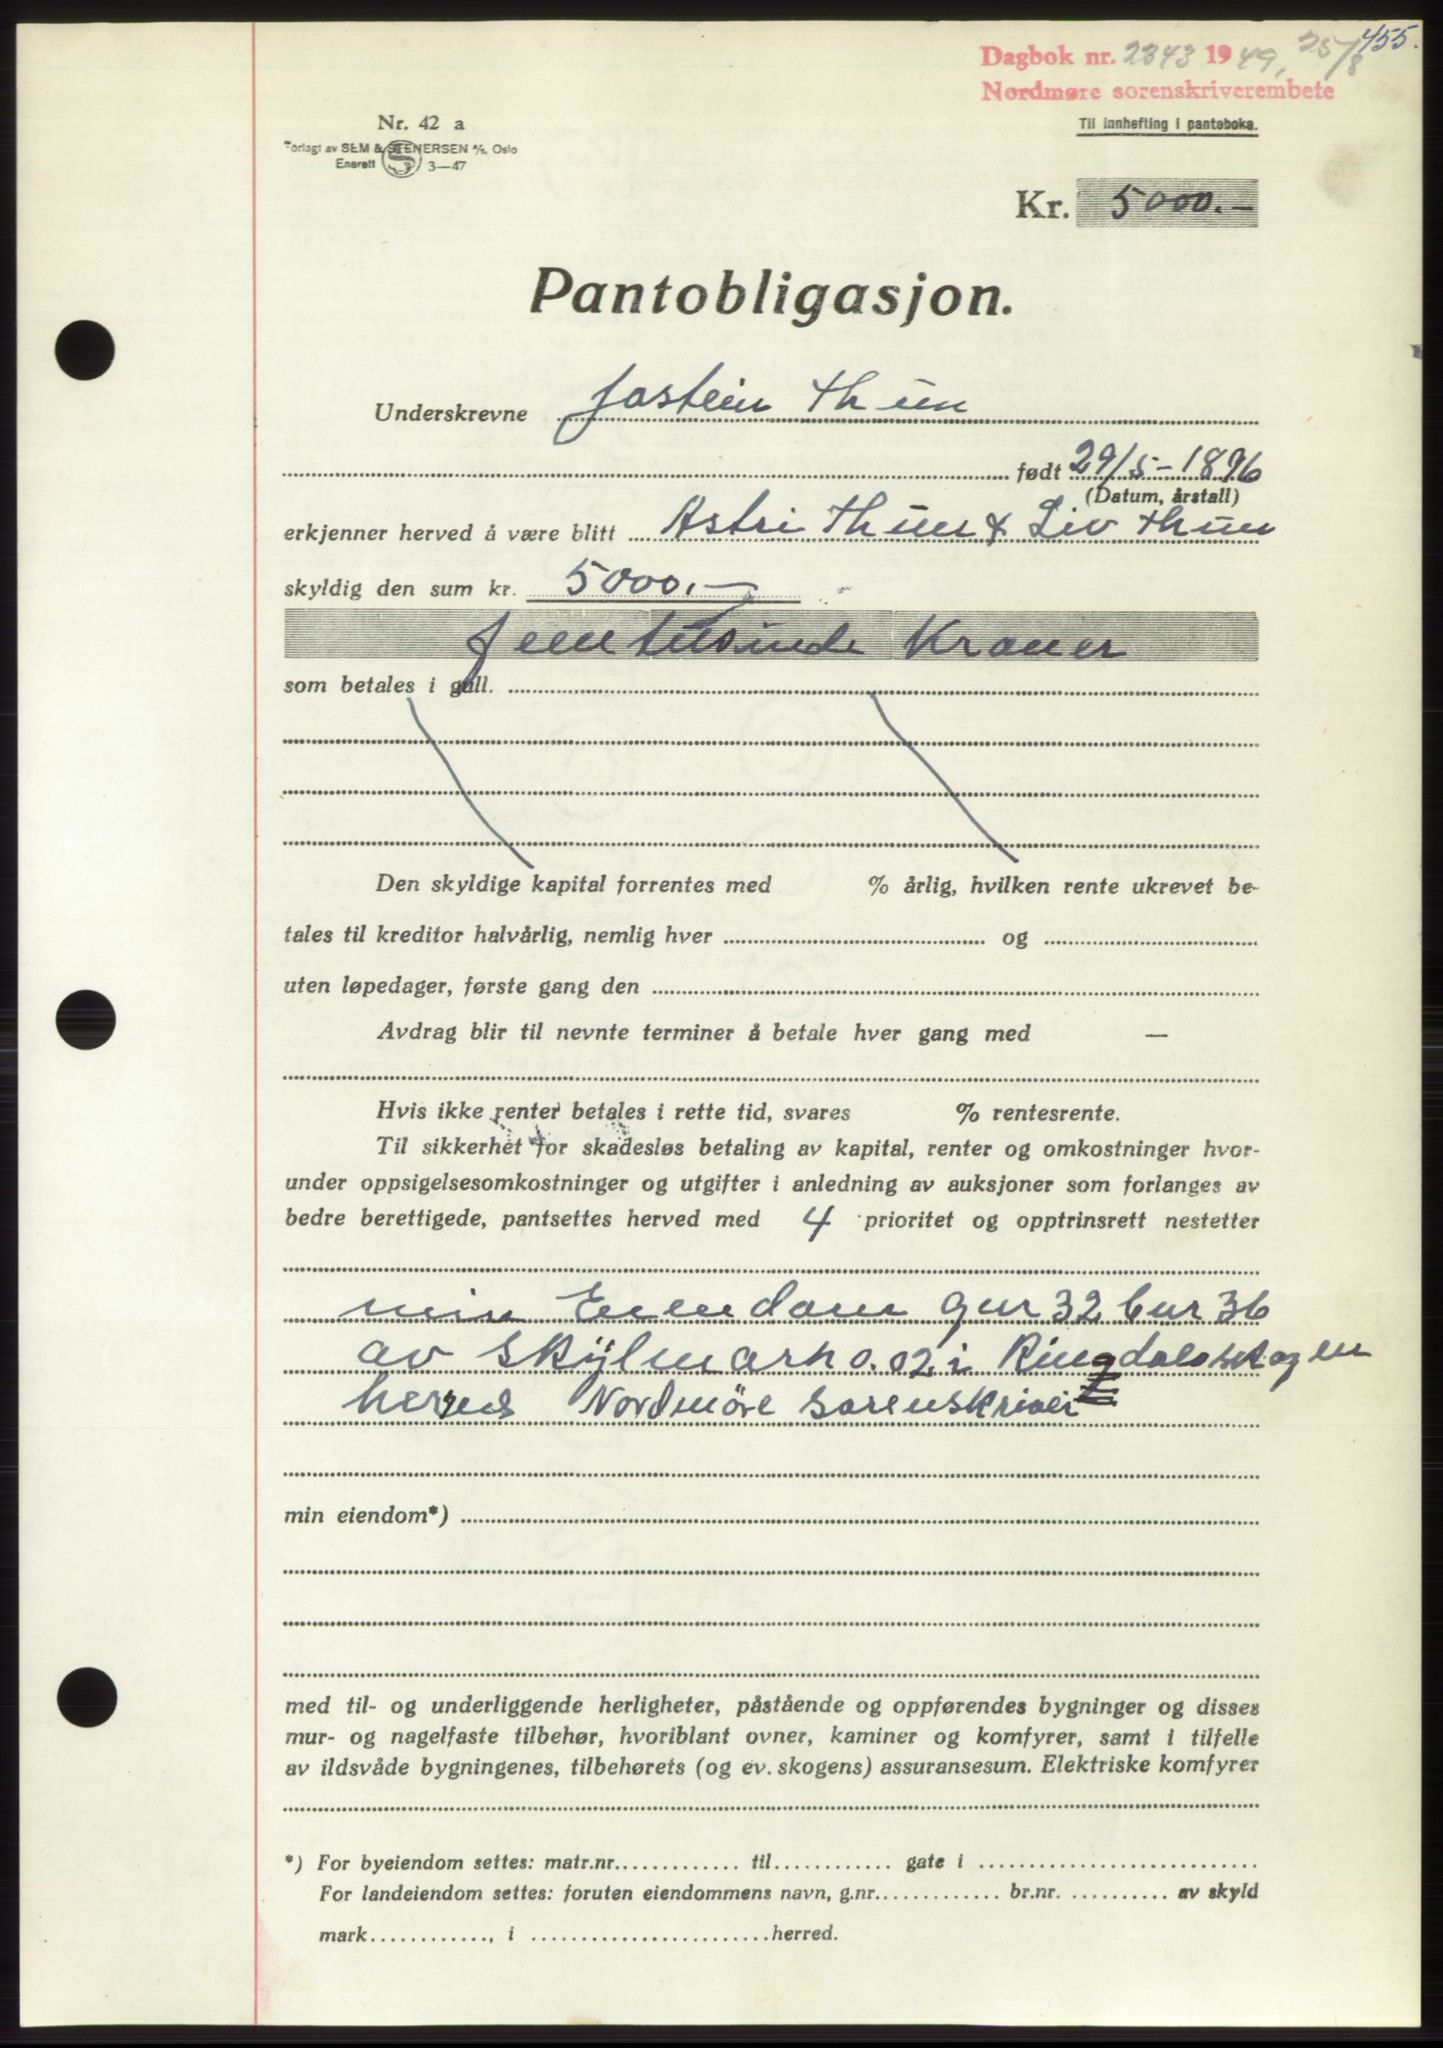 455.
Dagbok nr. 2343 1949, 25/8
Nordmøre sorenskriverembete
Til innhefting i panteboka.
Nr. 42 a
Forlagt av SEM & STENERSEN A/S, Oslo
Enerett S 3—47
Kr. 5000.-
Pantobligasjon.
Underskrevne Jostein Thun
født 29/5-1896
(Datum, årstall)
erkjenner herved å være blitt Astri Thun & Liv Thun
skyldig den sum kr. 5000.-
femtusinde Kroner
som betales i gull.
Den skyldige kapital forrentes med % årlig, hvilken rente ukrevet be-
tales til kreditor halvårlig, nemlig hver og
uten løpedager, første gang den
Avdrag blir til nevnte terminer å betale hver gang med —
Hvis ikke renter betales i rette tid, svares % rentesrente.
Til sikkerhet for skadesløs betaling av kapital, renter og omkostninger hvor-
under oppsigelsesomkostninger og utgifter i anledning av auksjoner som forlanges av
bedre berettigede, pantsettes herved med 4 prioritet og opptrinsrett nestetter
min Eiendom gnr 32 bnr 36
av Skylmark 0.02 i
Nordmöre Sorenskriveri
min eiendom*)
med til- og underliggende herligheter, påstående og oppførendes bygninger og disses
mur- og nagelfaste tilbehør, hvoriblant ovner, kaminer og komfyrer, samt i tilfelle
av ildsvåde bygningenes, tilbehørets (og ev. skogens) assuransesum. Elektriske komfyrer
*) For byeiendom settes: matr.nr. til gate i
For landeiendom settes: foruten eiendommens navn, g.nr. br.nr. av skyld
mark , i herred.